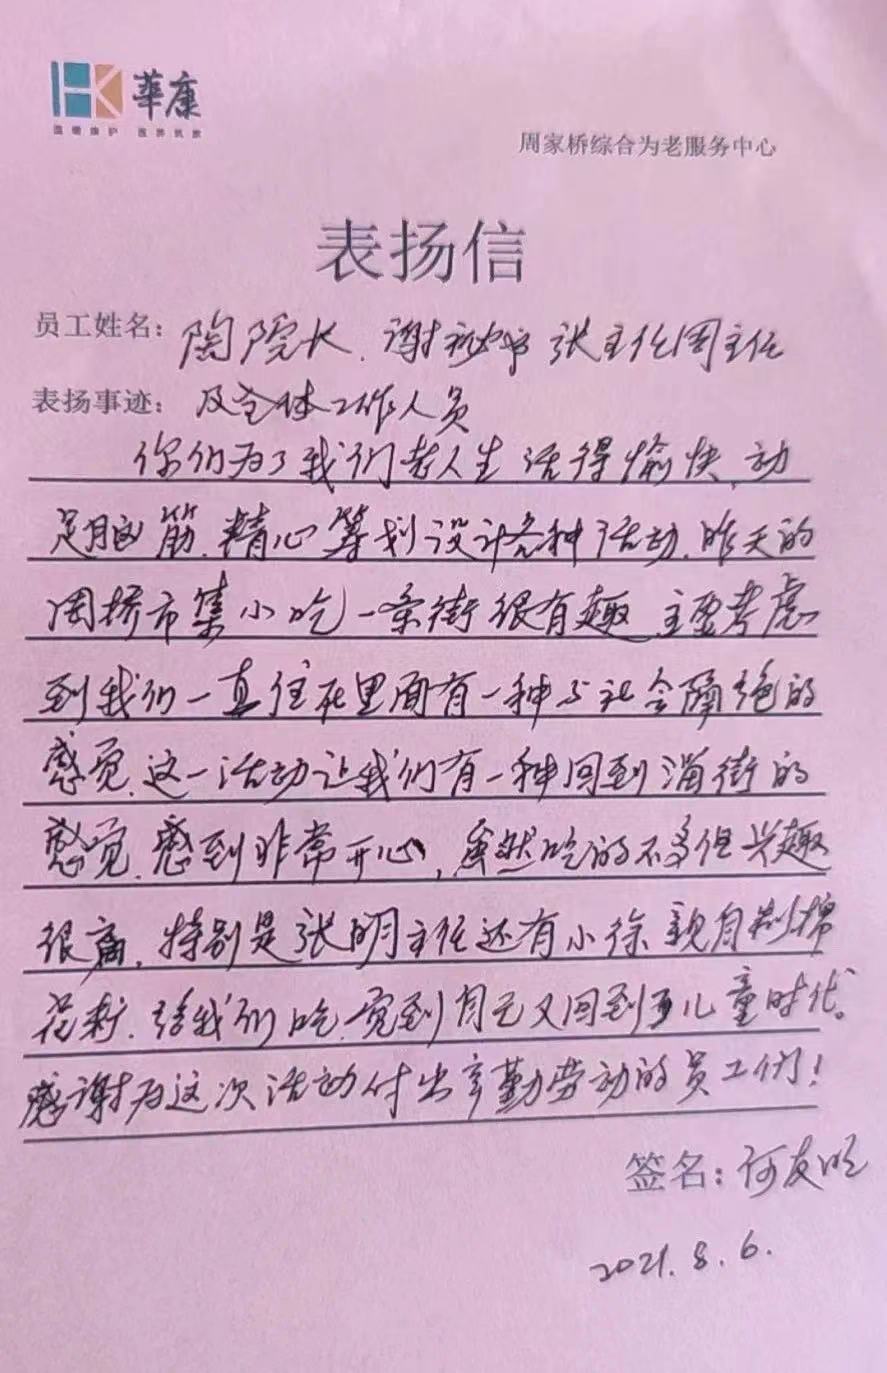 華康
周家桥综合为老服务中心
表扬信
员工姓名：陶院长、谢秘书 张主任周主任
表扬事迹：及全体工作人员
你们为了我们老人生活得愉快、动
足脑筋、精心筹划设计各种活动、昨天的
周桥市集小吃一条街很有趣、主要考虑
到我们一直住在里面有一种与社会隔绝的
感觉、这一活动让我们有一种回到淄街的
感觉、感到非常开心，虽然吃的不多但兴趣
很高、特别是张明主任还有小徐亲自制棉
花糖、给我们吃、觉到自己又回到了儿童时代。
感谢为这次活动付出辛勤劳动的员工们！
签名：何友明
2021.8.6.